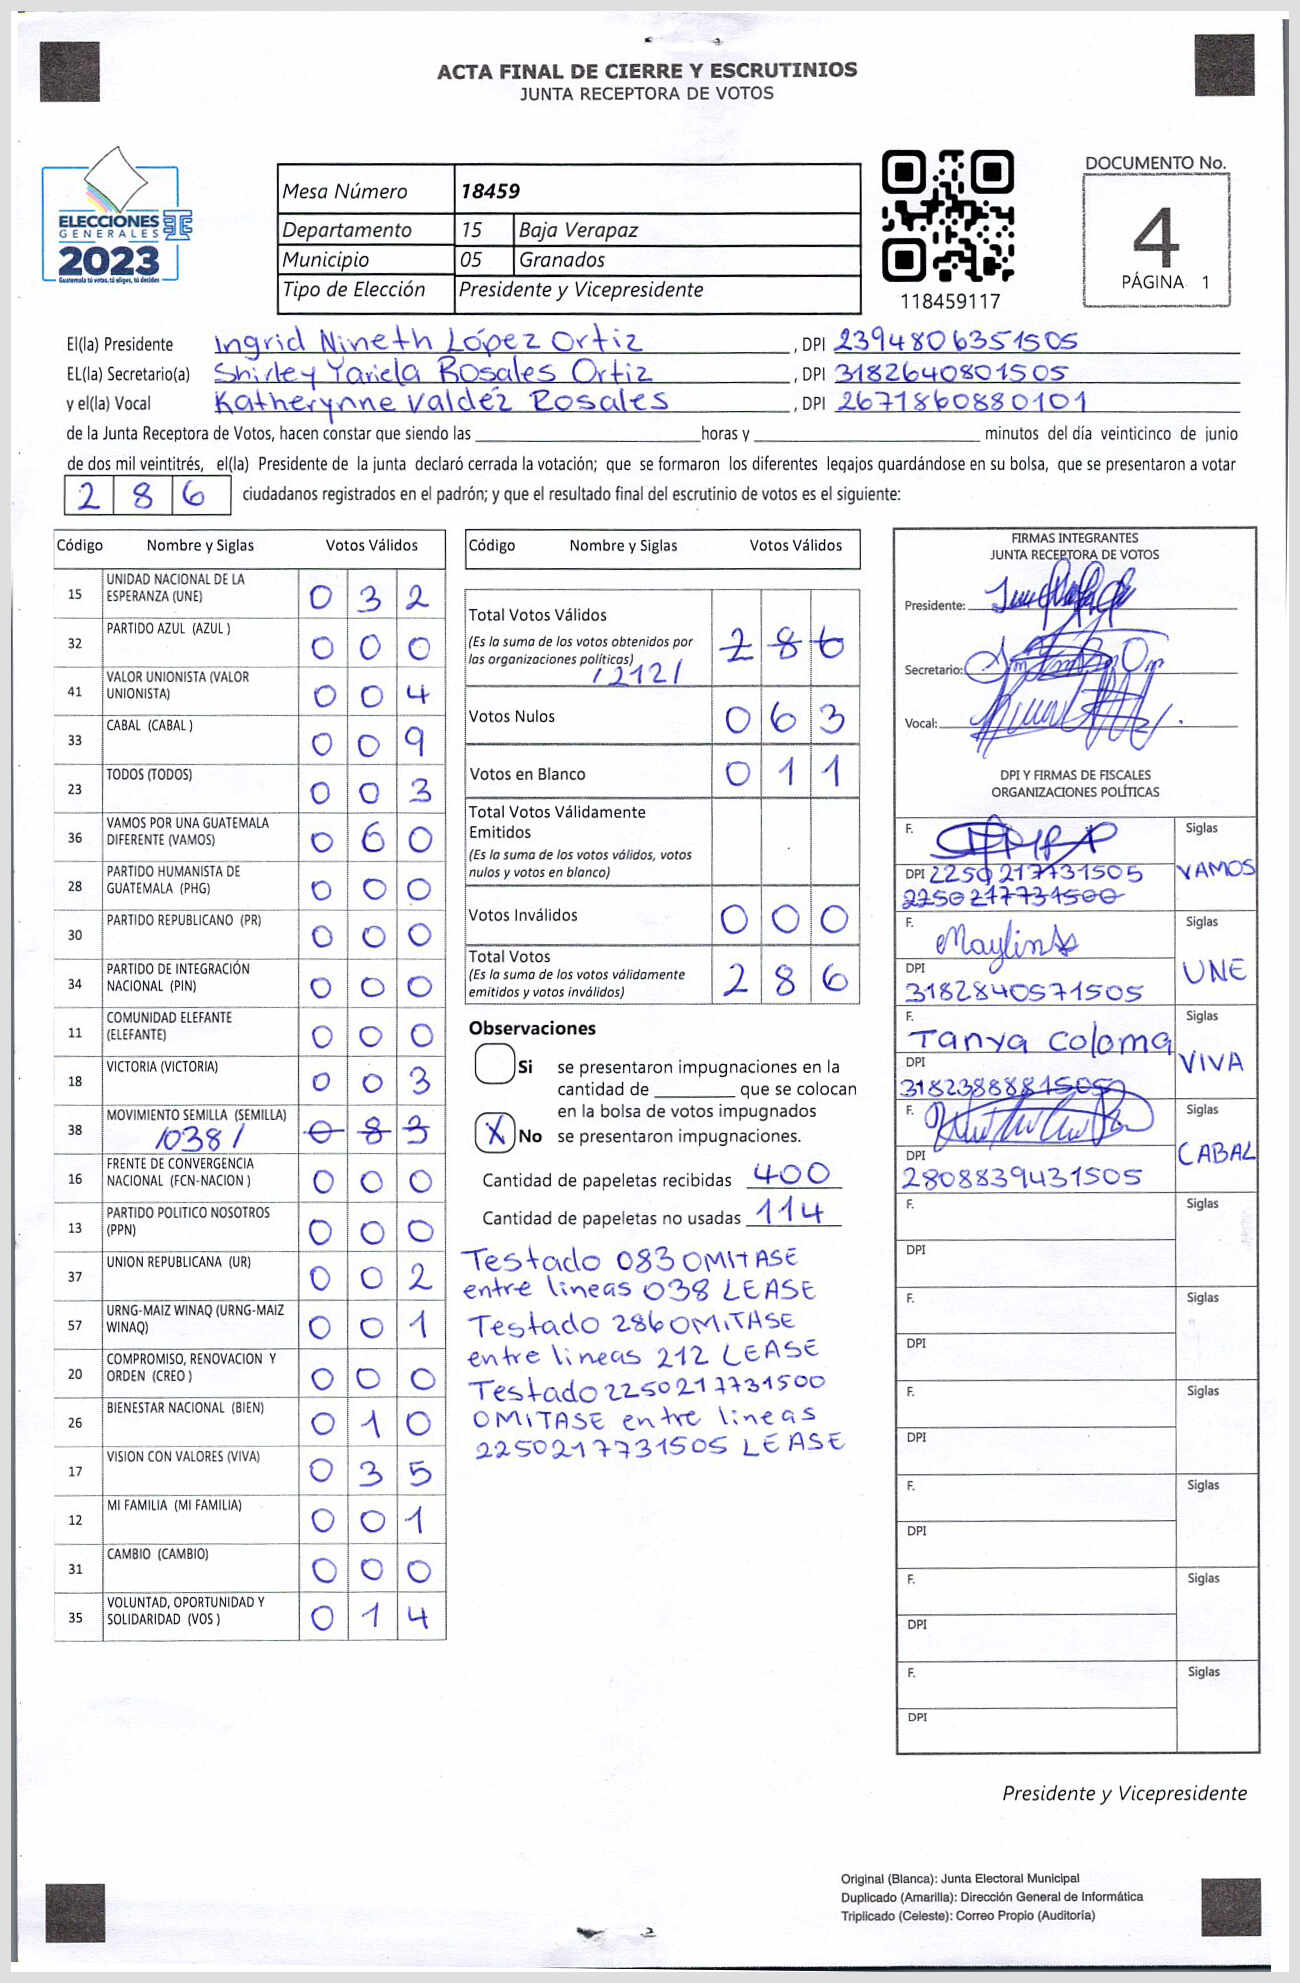 ACTA FINAL DE CIERRE Y ESCRUTINIOS
JUNTA RECEPTORA DE VOTOS
ELECCIONES
GENERALES
2023
Guatemala tú votas, tú eliges, tú decides
Mesa Número 18459
Departamento 15 Baja Verapaz
Municipio 05 Granados
Tipo de Elección Presidente y Vicepresidente
118459117
DOCUMENTO No.
4
PÁGINA 1
El(la) Presidente Ingrid Nineth López Ortiz , DPI 2394806351505
EL(la) Secretario(a) Shirley Yariela Rosales Ortiz , DPI 3182640801505
y el(la) Vocal Katherynne Valdéz Rosales , DPI 2671860880101
de la Junta Receptora de Votos, hacen constar que siendo las horas y minutos del día veinticinco de junio
de dos mil veintitrés, el(la) Presidente de la junta declaró cerrada la votación; que se formaron los diferentes legajos guardándose en su bolsa, que se presentaron a votar
286 ciudadanos registrados en el padrón; y que el resultado final del escrutinio de votos es el siguiente:
Código Nombre y Siglas Votos Válidos
15 UNIDAD NACIONAL DE LA
ESPERANZA (UNE) 0 3 2
32 PARTIDO AZUL (AZUL ) 0 0 0
41 VALOR UNIONISTA (VALOR
UNIONISTA) 0 0 4
33 CABAL (CABAL ) 0 0 9
23 TODOS (TODOS) 0 0 3
36 VAMOS POR UNA GUATEMALA
DIFERENTE (VAMOS) 0 6 0
28 PARTIDO HUMANISTA DE
GUATEMALA (PHG) 0 0 0
30 PARTIDO REPUBLICANO (PR) 0 0 0
34 PARTIDO DE INTEGRACIÓN
NACIONAL (PIN) 0 0 0
11 COMUNIDAD ELEFANTE
(ELEFANTE) 0 0 0
18 VICTORIA (VICTORIA) 0 0 3
38 MOVIMIENTO SEMILLA (SEMILLA)
/038/ 0 8 3
16 FRENTE DE CONVERGENCIA
NACIONAL (FCN-NACION ) 0 0 0
13 PARTIDO POLITICO NOSOTROS
(PPN) 0 0 0
37 UNION REPUBLICANA (UR) 0 0 2
57 URNG-MAIZ WINAQ (URNG-MAIZ
WINAQ) 0 0 1
20 COMPROMISO, RENOVACION Y
ORDEN (CREO ) 0 0 0
26 BIENESTAR NACIONAL (BIEN) 0 1 0
17 VISION CON VALORES (VIVA) 0 3 5
12 MI FAMILIA (MI FAMILIA) 0 0 1
31 CAMBIO (CAMBIO) 0 0 0
35 VOLUNTAD, OPORTUNIDAD Y
SOLIDARIDAD (VOS ) 0 1 4
Código Nombre y Siglas Votos Válidos
Total Votos Válidos
(Es la suma de los votos obtenidos por
las organizaciones políticas) 2 8 6
/212/
Votos Nulos 0 6 3
Votos en Blanco 0 1 1
Total Votos Válidamente
Emitidos
(Es la suma de los votos válidos, votos
nulos y votos en blanco)
Votos Inválidos 0 0 0
Total Votos
(Es la suma de los votos válidamente
emitidos y votos inválidos) 2 8 6
Observaciones
Si se presentaron impugnaciones en la
cantidad de que se colocan
en la bolsa de votos impugnados
X No se presentaron impugnaciones.
Cantidad de papeletas recibidas 400
Cantidad de papeletas no usadas 114
Testado 083 OMITASE
entre lineas 038 LEASE
Testado 286 OMITASE
entre lineas 212 LEASE
Testado 2250217731500
OMITASE entre lineas
2250217731505 LEASE
FIRMAS INTEGRANTES
JUNTA RECEPTORA DE VOTOS
Presidente:
Secretario:
Vocal:
DPI Y FIRMAS DE FISCALES
ORGANIZACIONES POLÍTICAS
F. Siglas
DPI 2250217731505 VAMOS
2250217731500
F. Maylin Siglas
DPI UNE
3182840571505
F. Siglas
Tanya Coloma
DPI VIVA
3182388881505
F. Siglas
DPI CABAL
2808839431505
F. Siglas
DPI
F. Siglas
DPI
F. Siglas
DPI
F. Siglas
DPI
F. Siglas
DPI
F. Siglas
DPI
Presidente y Vicepresidente
Original (Blanca): Junta Electoral Municipal
Duplicado (Amarilla): Dirección General de Informática
Triplicado (Celeste): Correo Propio (Auditoría)